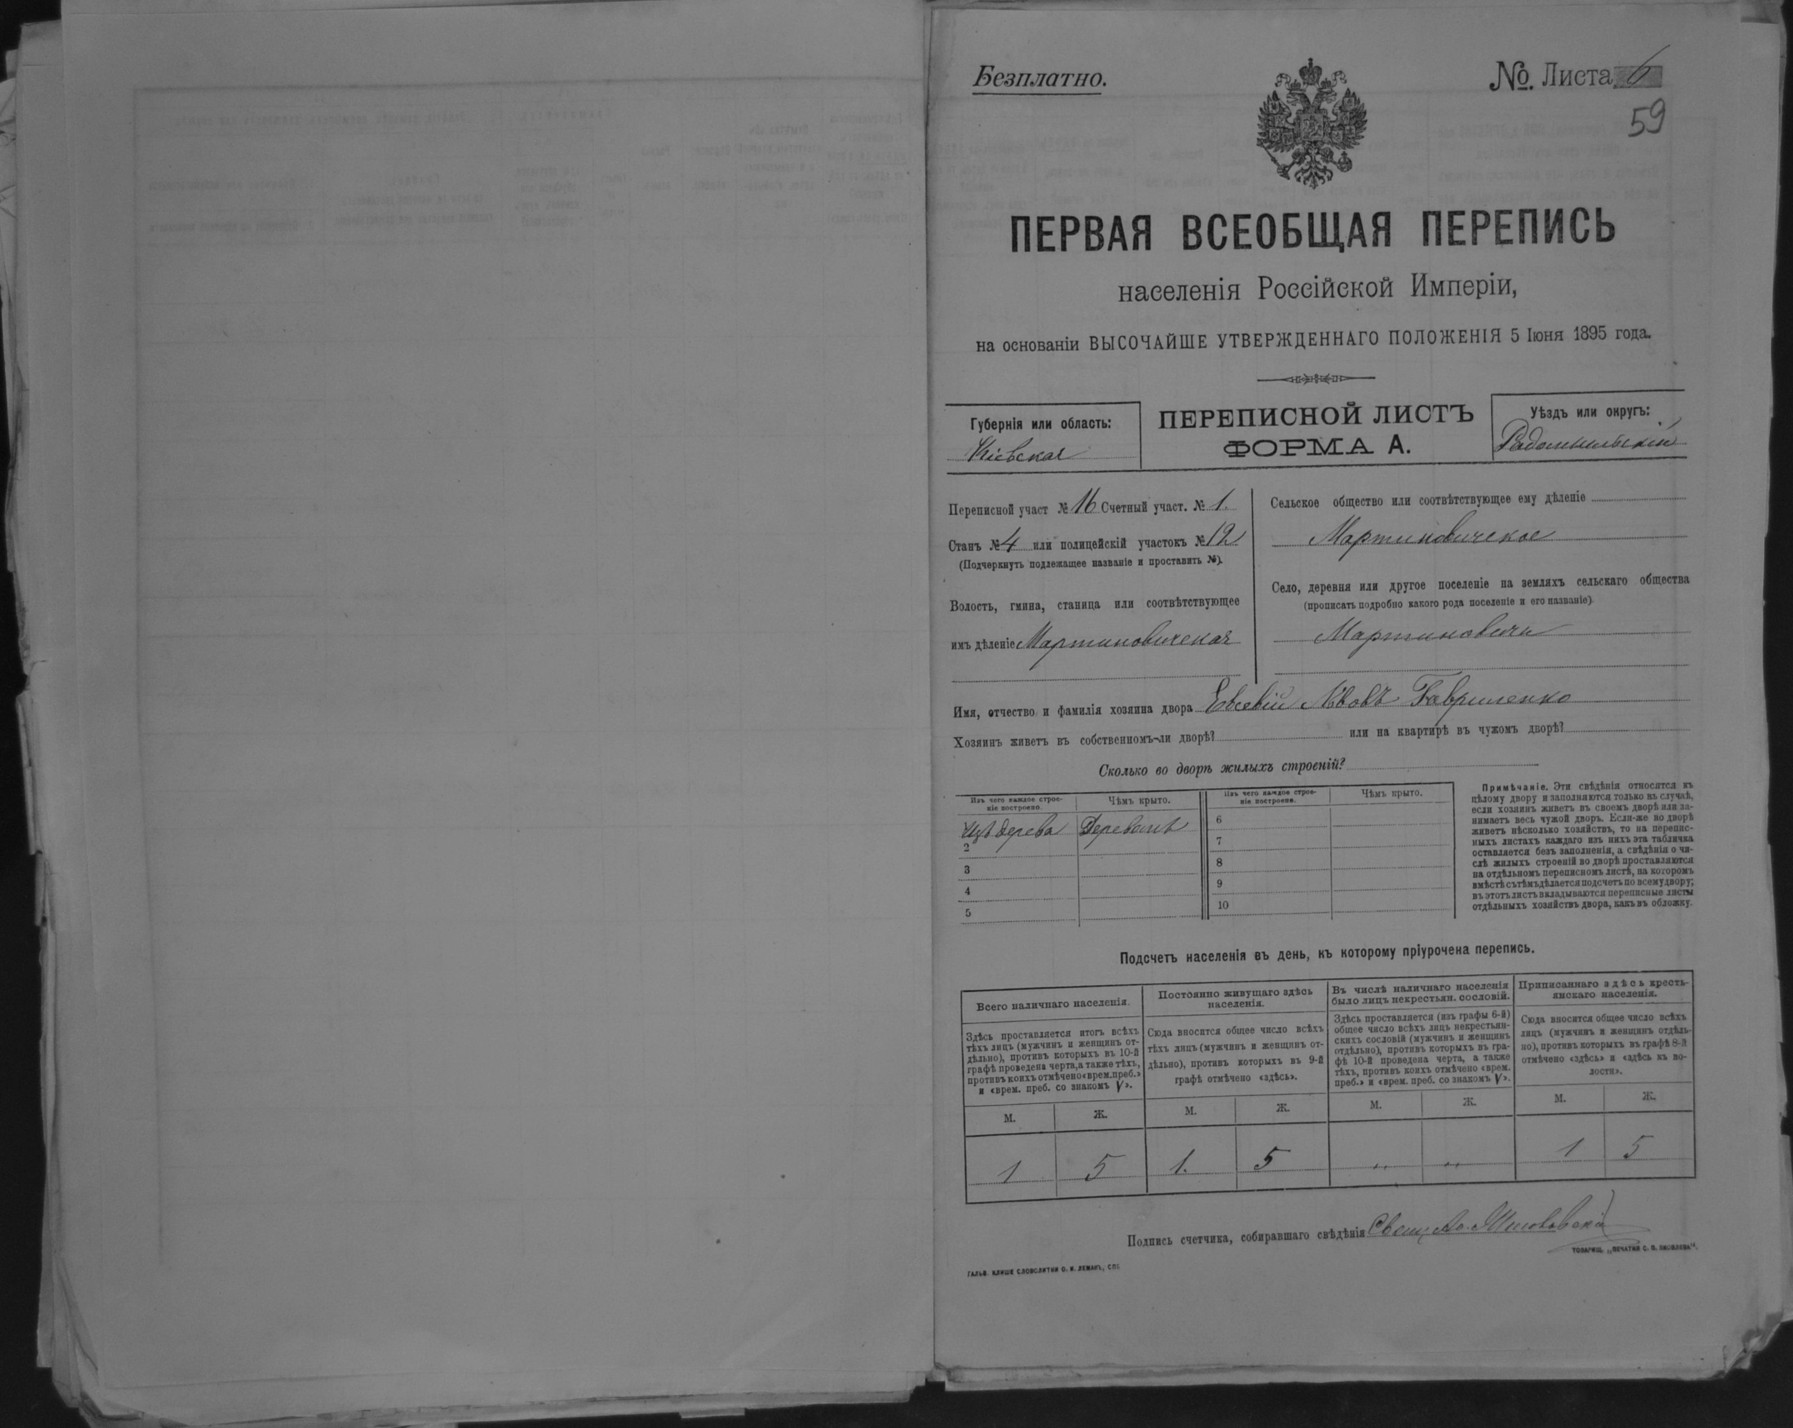 Безплатно.
№. Листа 6
59
ПЕРВАЯ ВСЕОБЩАЯ ПЕРЕПИСЬ
населенія Россійской Имперіи,
на основаніи ВЫСОЧАЙШЕ УТВЕРЖДЕННАГО ПОЛОЖЕНІЯ 5 Іюня 1895 года.
Губернія или область:
Кіевская
ПЕРЕПИСНОЙ ЛИСТЪ
ФОРМА А.
Уѣздъ или округъ:
Радомысльскій
Переписной участ № 16 Счетный участ. № 1.
Станъ № 4 или полицейскій участокъ № 12
(Подчеркнуть подлежащее названіе и проставить №).
Волость, гмина, станица или соотвѣтствующее
имъ дѣленіе Мартиновичская
Сельское общество или соотвѣтствующее ему дѣленіе
Мартиновичское
Село, деревня или другое поселеніе на земляхъ сельскаго общества
(прописать подробно какого рода поселеніе и его названіе).
Мартиновичи
Имя, отчество и фамилія хозяина двора Евсевій Гавриленко
Хозяинъ живетъ въ собственномъ-ли дворѣ? или на квартирѣ въ чужомъ дворѣ?
Сколько во дворѣ жилыхъ строеній?
Изъ чего каждое строе-
ніе построено.
Чѣмъ крыто.
Изъ дерева Деревомъ
2
3
4
5
Изъ чего каждое строе-
ніе построено.
Чѣмъ крыто.
6
7
8
9
10
Примѣчаніе. Эти свѣдѣнія относятся къ
цѣлому двору и заполняются только въ случаѣ,
если хозяинъ живетъ въ своемъ дворѣ или за-
нимаетъ весь чужой дворъ. Если-же во дворѣ
живетъ нѣсколько хозяйствъ, то на перепис-
ныхъ листахъ каждаго изъ нихъ эта табличка
оставляется безъ заполненія, а свѣдѣнія о чи-
слѣ жилыхъ строеній во дворѣ проставляются
на отдѣльномъ переписномъ листѣ, на которомъ
вмѣстѣ съ тѣмъ дѣлается подсчетъ по всему двору;
въ этотъ листъ вкладываются переписные листы
отдѣльныхъ хозяйствъ двора, какъ въ обложку.
Подсчетъ населенія въ день, къ которому пріурочена перепись.
Всего наличнаго населенія.
Здѣсь проставляется итогъ всѣхъ
тѣхъ лицъ (мужчинъ и женщинъ от-
дѣльно), противъ которыхъ въ 10-й
графѣ проведена черта, а также тѣхъ,
противъ коихъ отмѣчено «врем. преб.»
и «врем. преб. со знакомъ V».
М. Ж.
1 5
Постоянно живущаго здѣсь
населенія.
Сюда вносится общее число всѣхъ
тѣхъ лицъ (мужчинъ и женщинъ от-
дѣльно), противъ которыхъ въ 9-й
графѣ отмѣчено «здѣсь».
М. Ж.
1. 5
Въ числѣ наличнаго населенія
было лицъ некрестьян. сословій.
Здѣсь проставляется (изъ графы 6-й)
общее число всѣхъ лицъ некрестьян-
скихъ сословій (мужчинъ и женщинъ
отдѣльно), противъ которыхъ въ гра-
фѣ 10-й проведена черта, а также
тѣхъ, противъ коихъ отмѣчено «врем.
преб.» и «врем. преб. со знакомъ V».
М. Ж.
„ „
Приписаннаго здѣсь кресть-
янскаго населенія.
Сюда вносится общее число всѣхъ
лицъ (мужчинъ и женщинъ отдѣль-
но), противъ которыхъ въ графѣ 8-й
отмѣчено «здѣсь» и «здѣсь въ во-
лости».
М. Ж.
1 5
Подпись счетчика, собиравшаго свѣдѣнія
ГАЛЬВ. КЛИШЕ СЛОВОЛИТНИ О. И. ЛЕМАНЪ, СПБ.
ТОВАРИЩ. „ПЕЧАТНИ С. П. ЯКОВЛЕВА“.